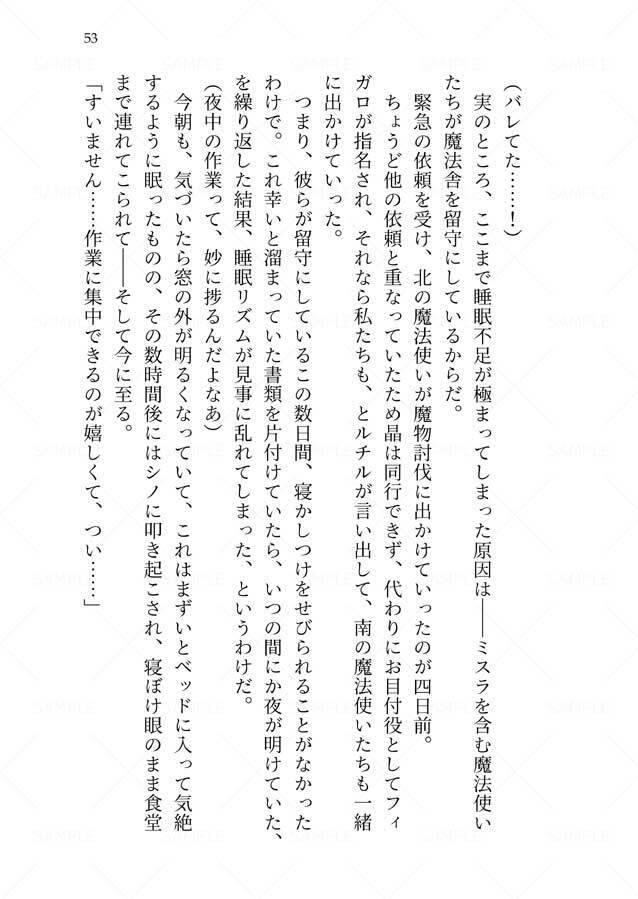 53
（バレてた……！）
　実のところ、ここまで睡眠不足が極まってしまった原因は――ミスラを含む魔法使い
たちが魔法舎を留守にしているからだ。
　緊急の依頼を受け、北の魔法使いが魔物討伐に出かけていったのが四日前。
　ちょうど他の依頼と重なっていたため晶は同行できず、代わりにお目付役としてフィ
ガロが指名され、それなら私たちも、とルチルが言い出して、南の魔法使いたちも一緒
に出かけていった。
　つまり、彼らが留守にしているこの数日間、寝かしつけをせびられることがなかった
わけで。これ幸いと溜まっていた書類を片付けていたら、いつの間にか夜が明けていた、
を繰り返した結果、睡眠リズムが見事に乱れてしまった、というわけだ。
（夜中の作業って、妙に捗るんだよなあ）
　今朝も、気づいたら窓の外が明るくなっていて、これはまずいとベッドに入って気絶
するように眠ったものの、その数時間後にはシノに叩き起こされ、寝ぼけ眼のまま食堂
まで連れてこられて――そして今に至る。
「すいません……作業に集中できるのが嬉しくて、つい……」